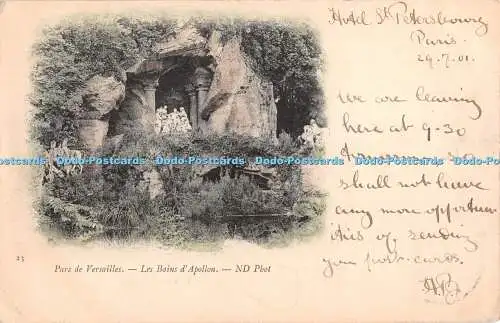 Hotel St Petersbourg
Paris.
29.7.01.
We are leaving
here at 9-30
so
shall not have
any more opportun
itis of sending
you post-cards.
23
Parc de Versailles. — Les Bains d'Apollon. — ND Phot
Dodo-Postcards Dodo-Postcards Dodo-Postcards Dodo-Postcards Dodo-Postcards